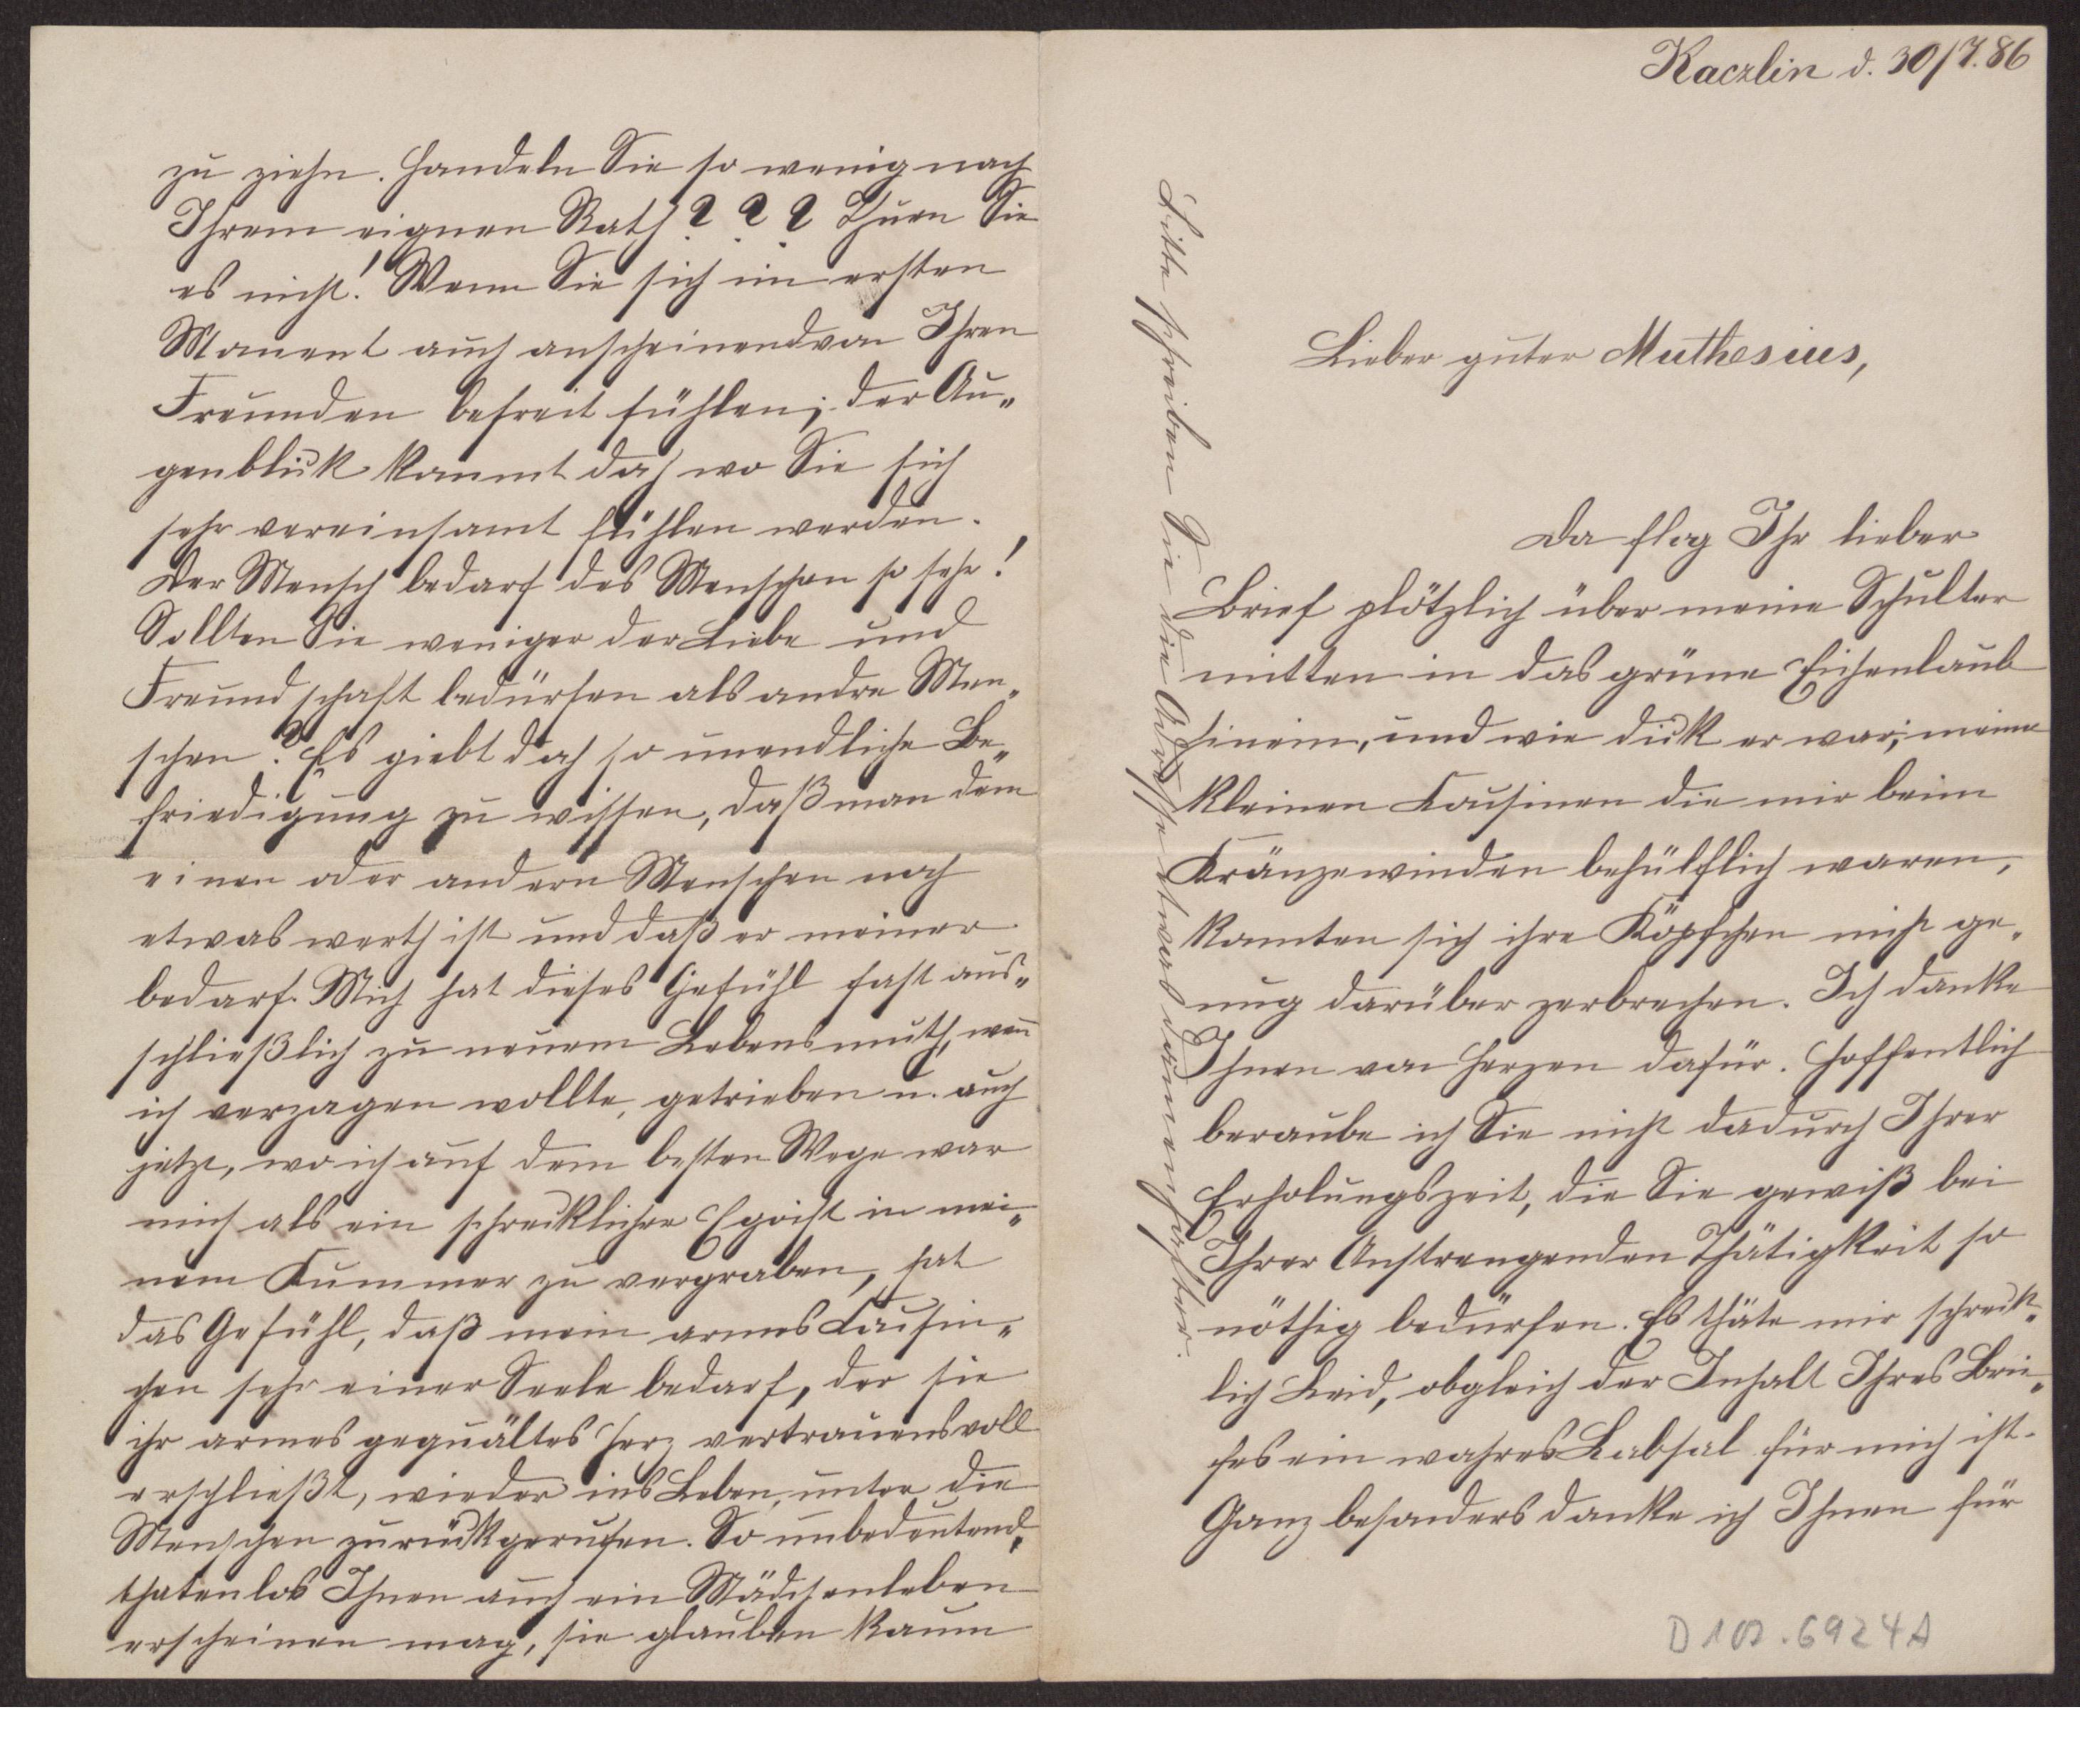 Kaczlin d. 30/7.86
Lieber guter Muthesius,
Da flog Ihr lieber
Brief plötzlich über meine Schulter
mitten in das grüne Eichenlaub
hinein, und wie dick er war; meine
kleinen Cousinen die mir beim
Kränzewinden behülflich waren,
konnten sich ihre Köpfchen nicht ge„
nug darüber zerbrechen. Ich danke
Ihnen von Herzen dafür. Hoffentlich
beraube ich Sie nicht dadurch Ihrer
Erholungszeit, die Sie gewiß bei
Ihrer Anstrengenden Thätigkeit so
nöthig bedürfen. Es thäte mir schreck„
lich Leid, obgleich der Inhalt Ihres Brie„
fes ein wahres Labsal für mich ist.
Ganz besonders danke ich Ihnen für
Bitte schreiben Sie die Adresse etwas damenhafter.
D 102.6924A
zu ziehn. Handeln Sie so wenig nach
Ihrem eignen Rath? ? ? Thuen Sie
es nicht! Wenn Sie sich im ersten
Moment auch anscheinend von Ihren
Freunden befreit fühlen; der Au„
genblick kommt doch wo Sie sich
sehr vereinsamt fühlen werden.
Der Mensch bedarf des Menschen so sehr!
Sollten Sie weniger der Liebe und
Freundschaft bedürfen als andre Men„
schen? Es giebt doch so unendliche Be„
friedigung zu wissen, daß man dem
einen oder andern Menschen noch
etwas werth ist und daß er meiner
bedarf. Mich hat dieses Gefühl fast aus„
schließlich zu neuem Lebensmuth, wen̄
ich verzagen wollte, getrieben u. auch
jetzt, wo ich auf dem besten Wege war
mich als ein schrecklicher Egoist in mei„
nem Kummer zu vergraben, hat
das Gefühl, daß mein armes Cousin„
chen sehr einer Seele bedarf, der sie
ihr armes gequältes Herz vertrauensvoll
erschließt, wieder ins Leben, unter die
Menschen zurückgerufen. So unbedeutend,
thatenlos Ihnen auch ein Mädchenleben
erscheinen mag, sie glauben kaum